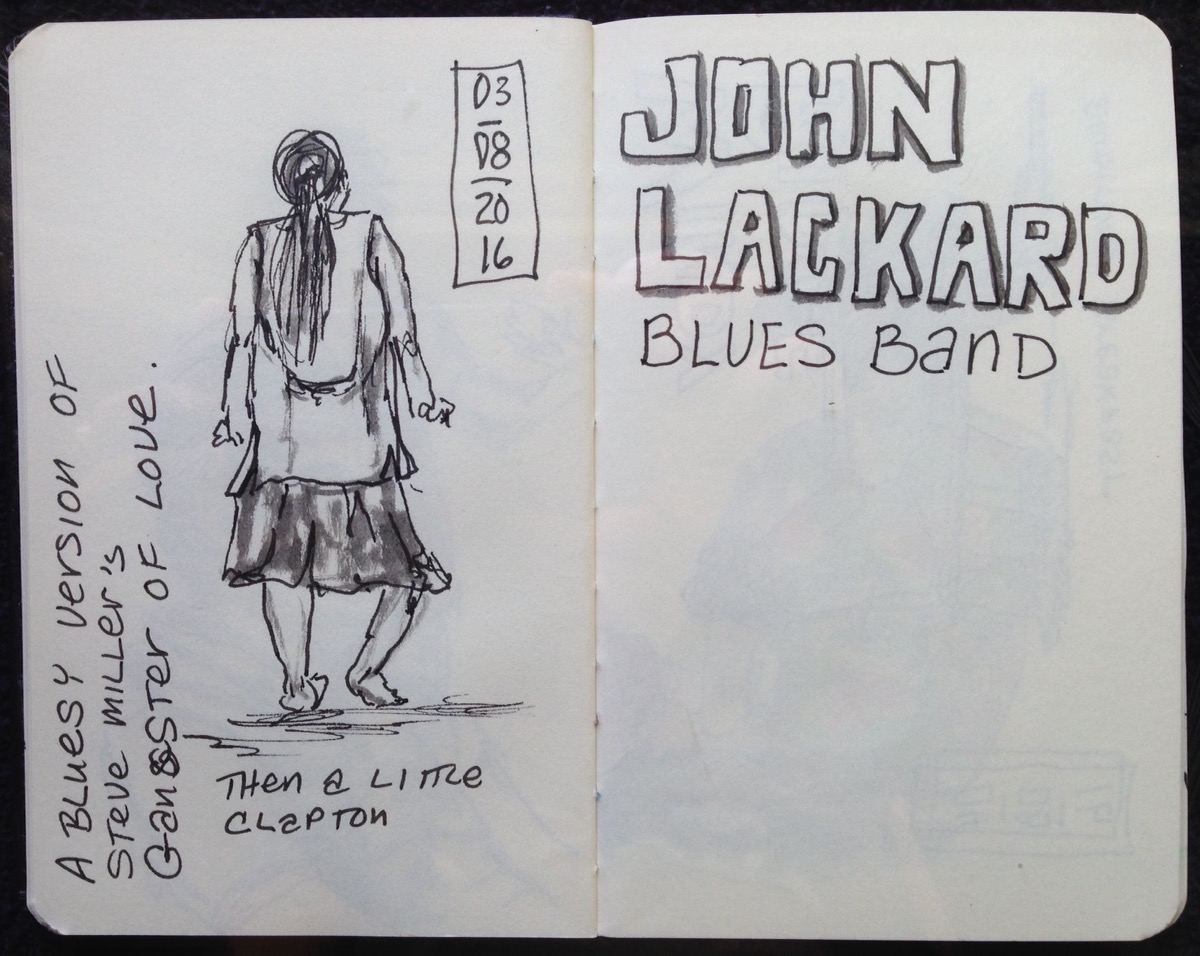 03
08
20
16
A BLUESY VERSION OF
STEVE MILLER'S
GANGSTER OF LOVE.
THEN A LITTLE
CLAPTON
JOHN
LACKARD
BLUES BAND